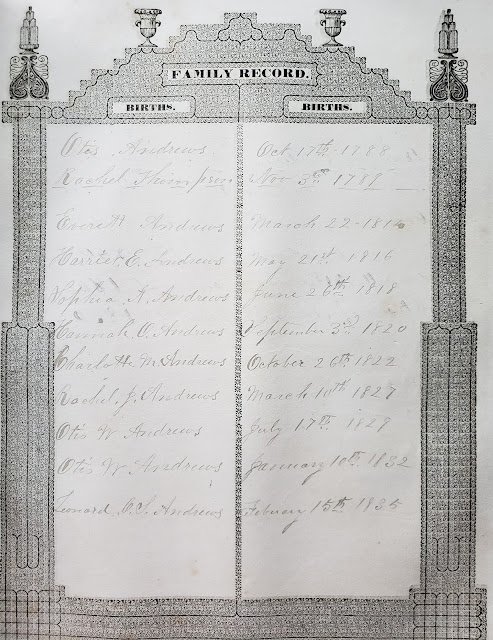 FAMILY RECORD.
BIRTHS. BIRTHS.
Otis Andrews Oct 17th 1788
Rachel Thompson Nov 3rd 1789
Everett Andrews March 22 - 1814
Harriet E. Andrews May 21st 1816
Sophia A. Andrews June 26th 1818
Hannah O. Andrews September 3rd 1820
Charlotte M Andrews October 26th 1822
Rachel J. Andrews March 10th 1827
Otis W Andrews July 17th 1829
Otis W Andrews January 10th 1832
Leonard P. S. Andrews Feberary 15th 1835